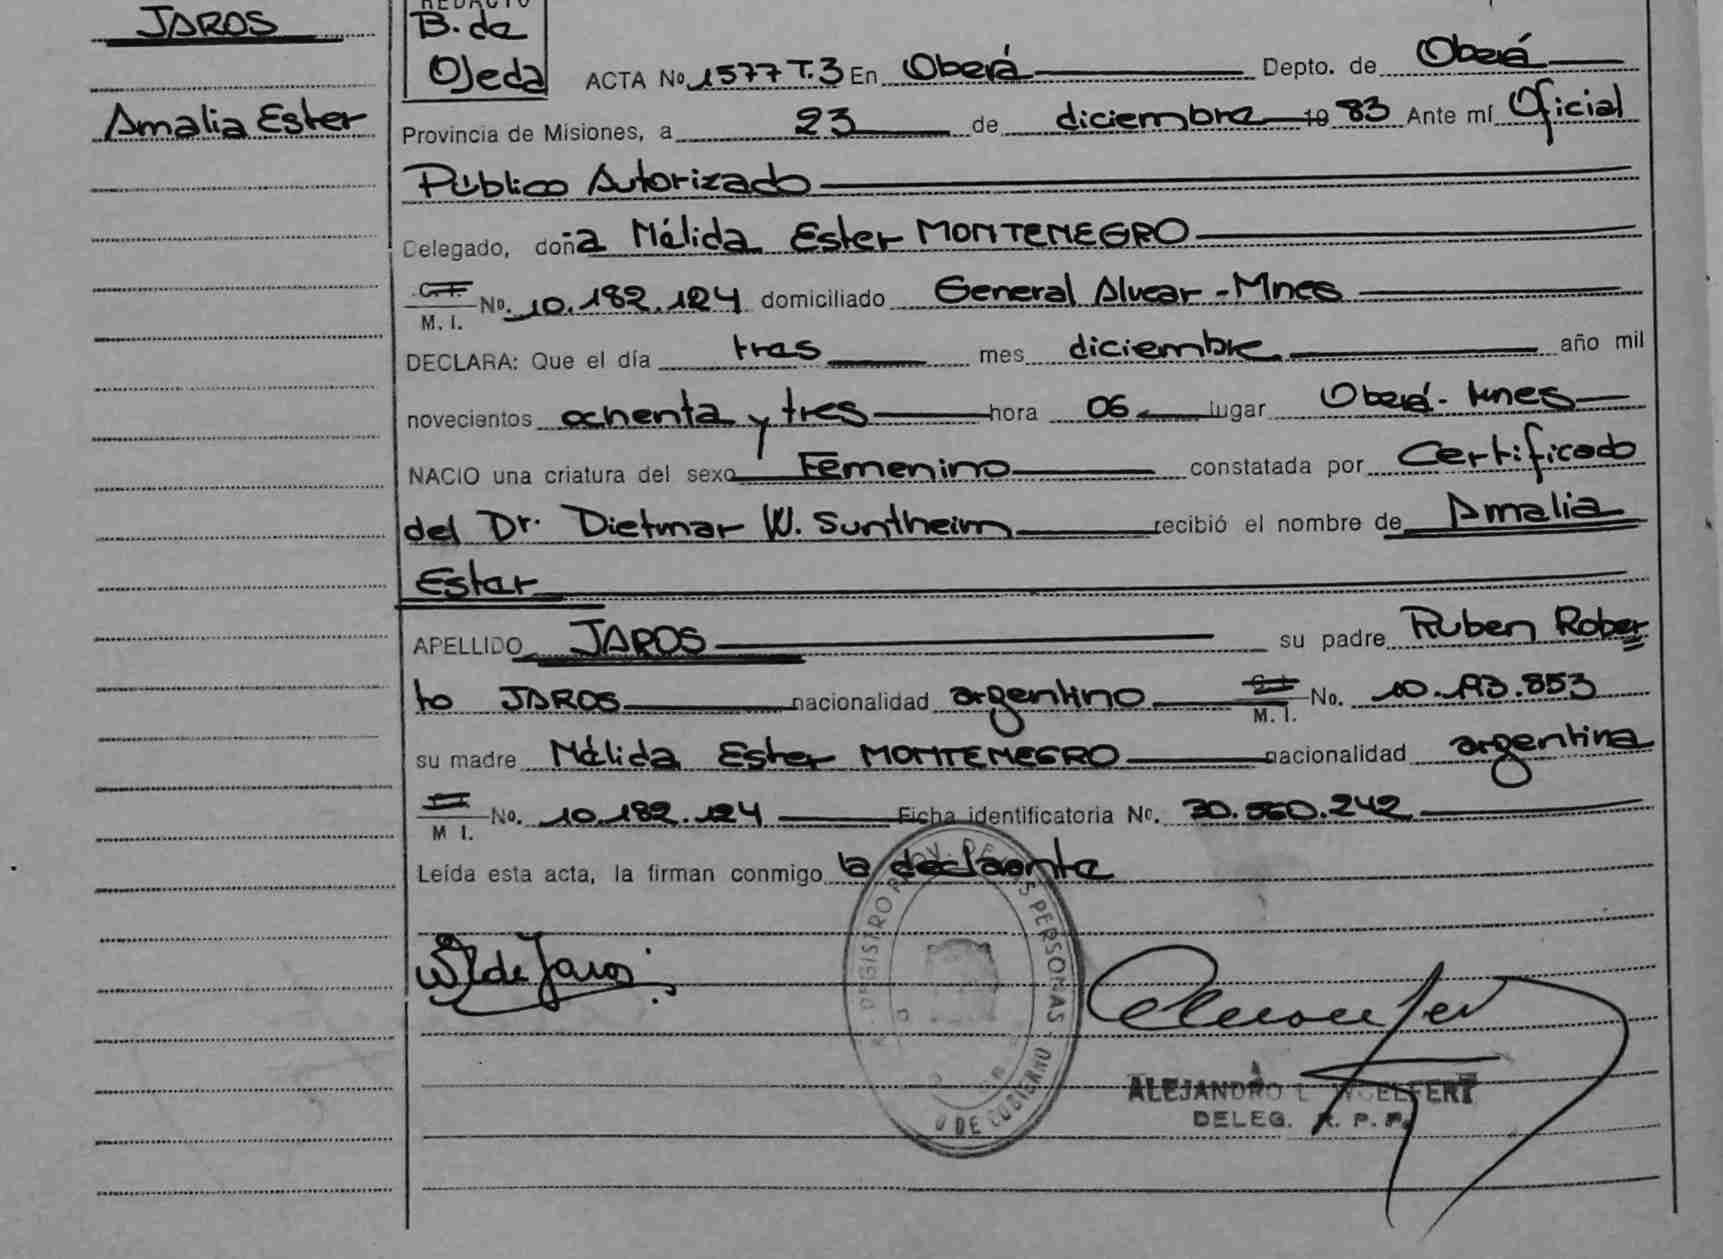 JAROS
Amalia Ester
REDACTO
B. de
Ojeda
ACTA No. 1577 T.3 En Oberá Depto. de Oberá
Provincia de Misiones, a 23 de diciembre 1983 Ante mí Oficial
Público Autorizado
Delegado, doña Nélida Ester MONTENEGRO
C. I.
M. I. No. 10.182.124 domiciliado General Alvear - Mnes
DECLARA: Que el día tres mes diciembre año mil
novecientos ochenta y tres hora 06 lugar Oberá - Mnes
NACIO una criatura del sexo Femenino constatada por Certificado
del Dr. Dietmar W. Suntheim recibió el nombre de Amalia
Ester
APELLIDO JAROS su padre Ruben Rober
to JAROS nacionalidad argentino C. I. M. I. No. 10.193.853
su madre Nélida Ester MONTENEGRO nacionalidad argentina
M I. No. 10.182.124 Ficha identificatoria No. 30.560.242
Leída esta acta, la firman conmigo la declarante
de Jaros
REGISTRO PROV. DE LAS PERSONAS
DE GOBIERNO
ALEJANDRO L. WOELFERT
DELEG. R. P. P.